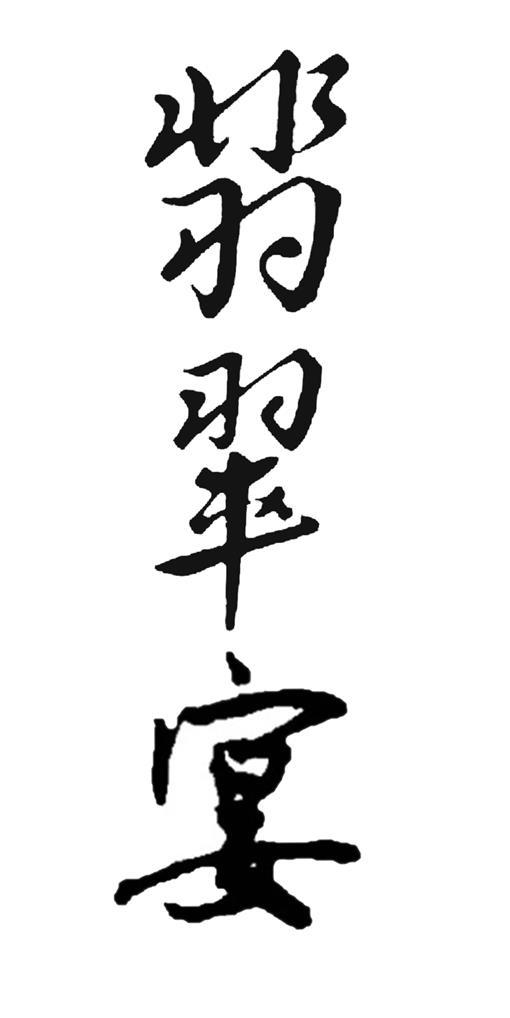 翡翠宴